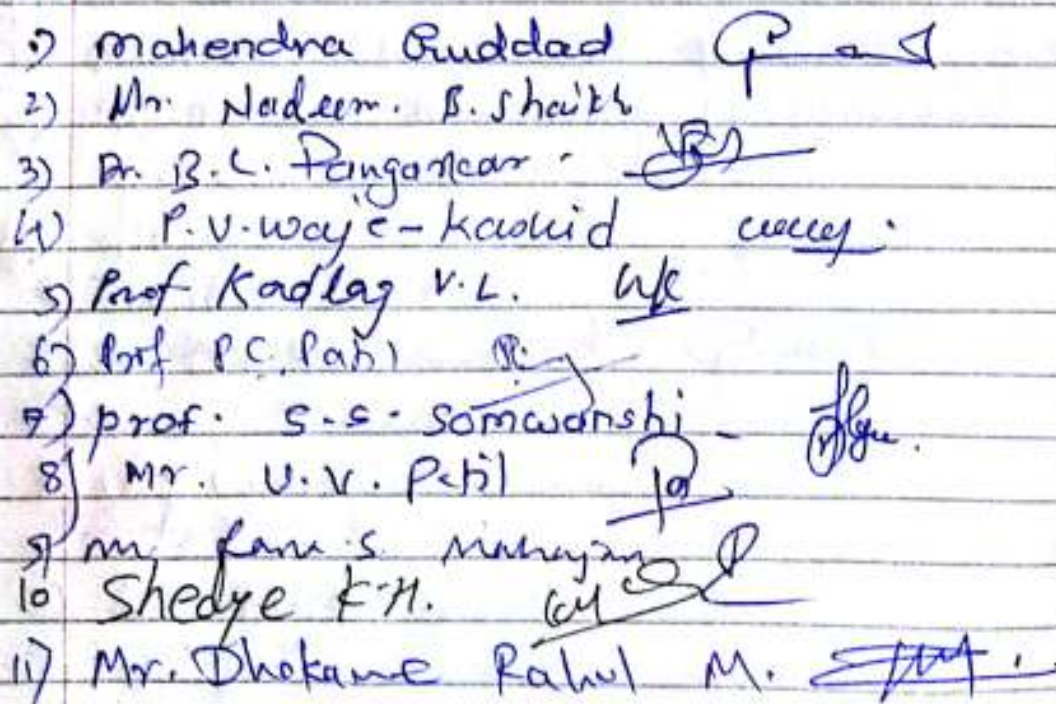 1) Mahendra Guddad
2) Mr. Nadeem. B. Shaikh
3) Dr. B.L. Pangarkar -
4) P.V. Waje - Kashid
5) Prof Kadlag V.L.
6) Prof P.C. Patil
7) prof. S.S. Somwanshi -
8) Mr. U.V. Patil
9) Mr. Ram S. Mahajan
10 Shedge K.H.
11) Mr. Dhokane Rahul M.